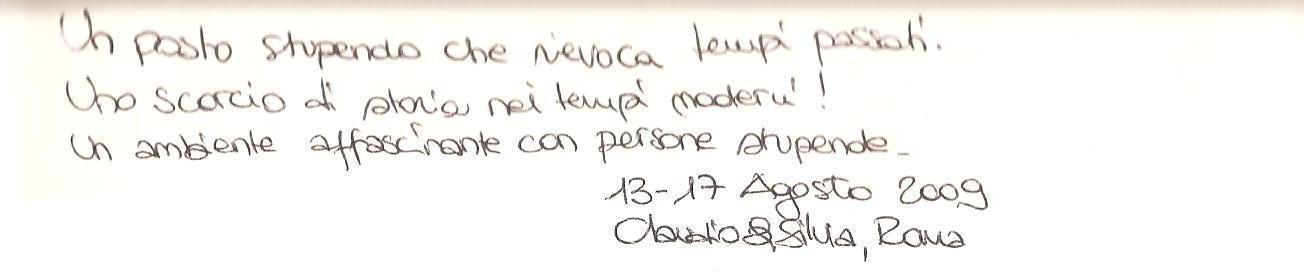 Un posto stupendo che rievoca tempi passati.
Uno scorcio di storia nei tempi moderni!
Un ambiente affascinante con persone stupende_
13-17 Agosto 2009
Claudio & Silvia, Roma